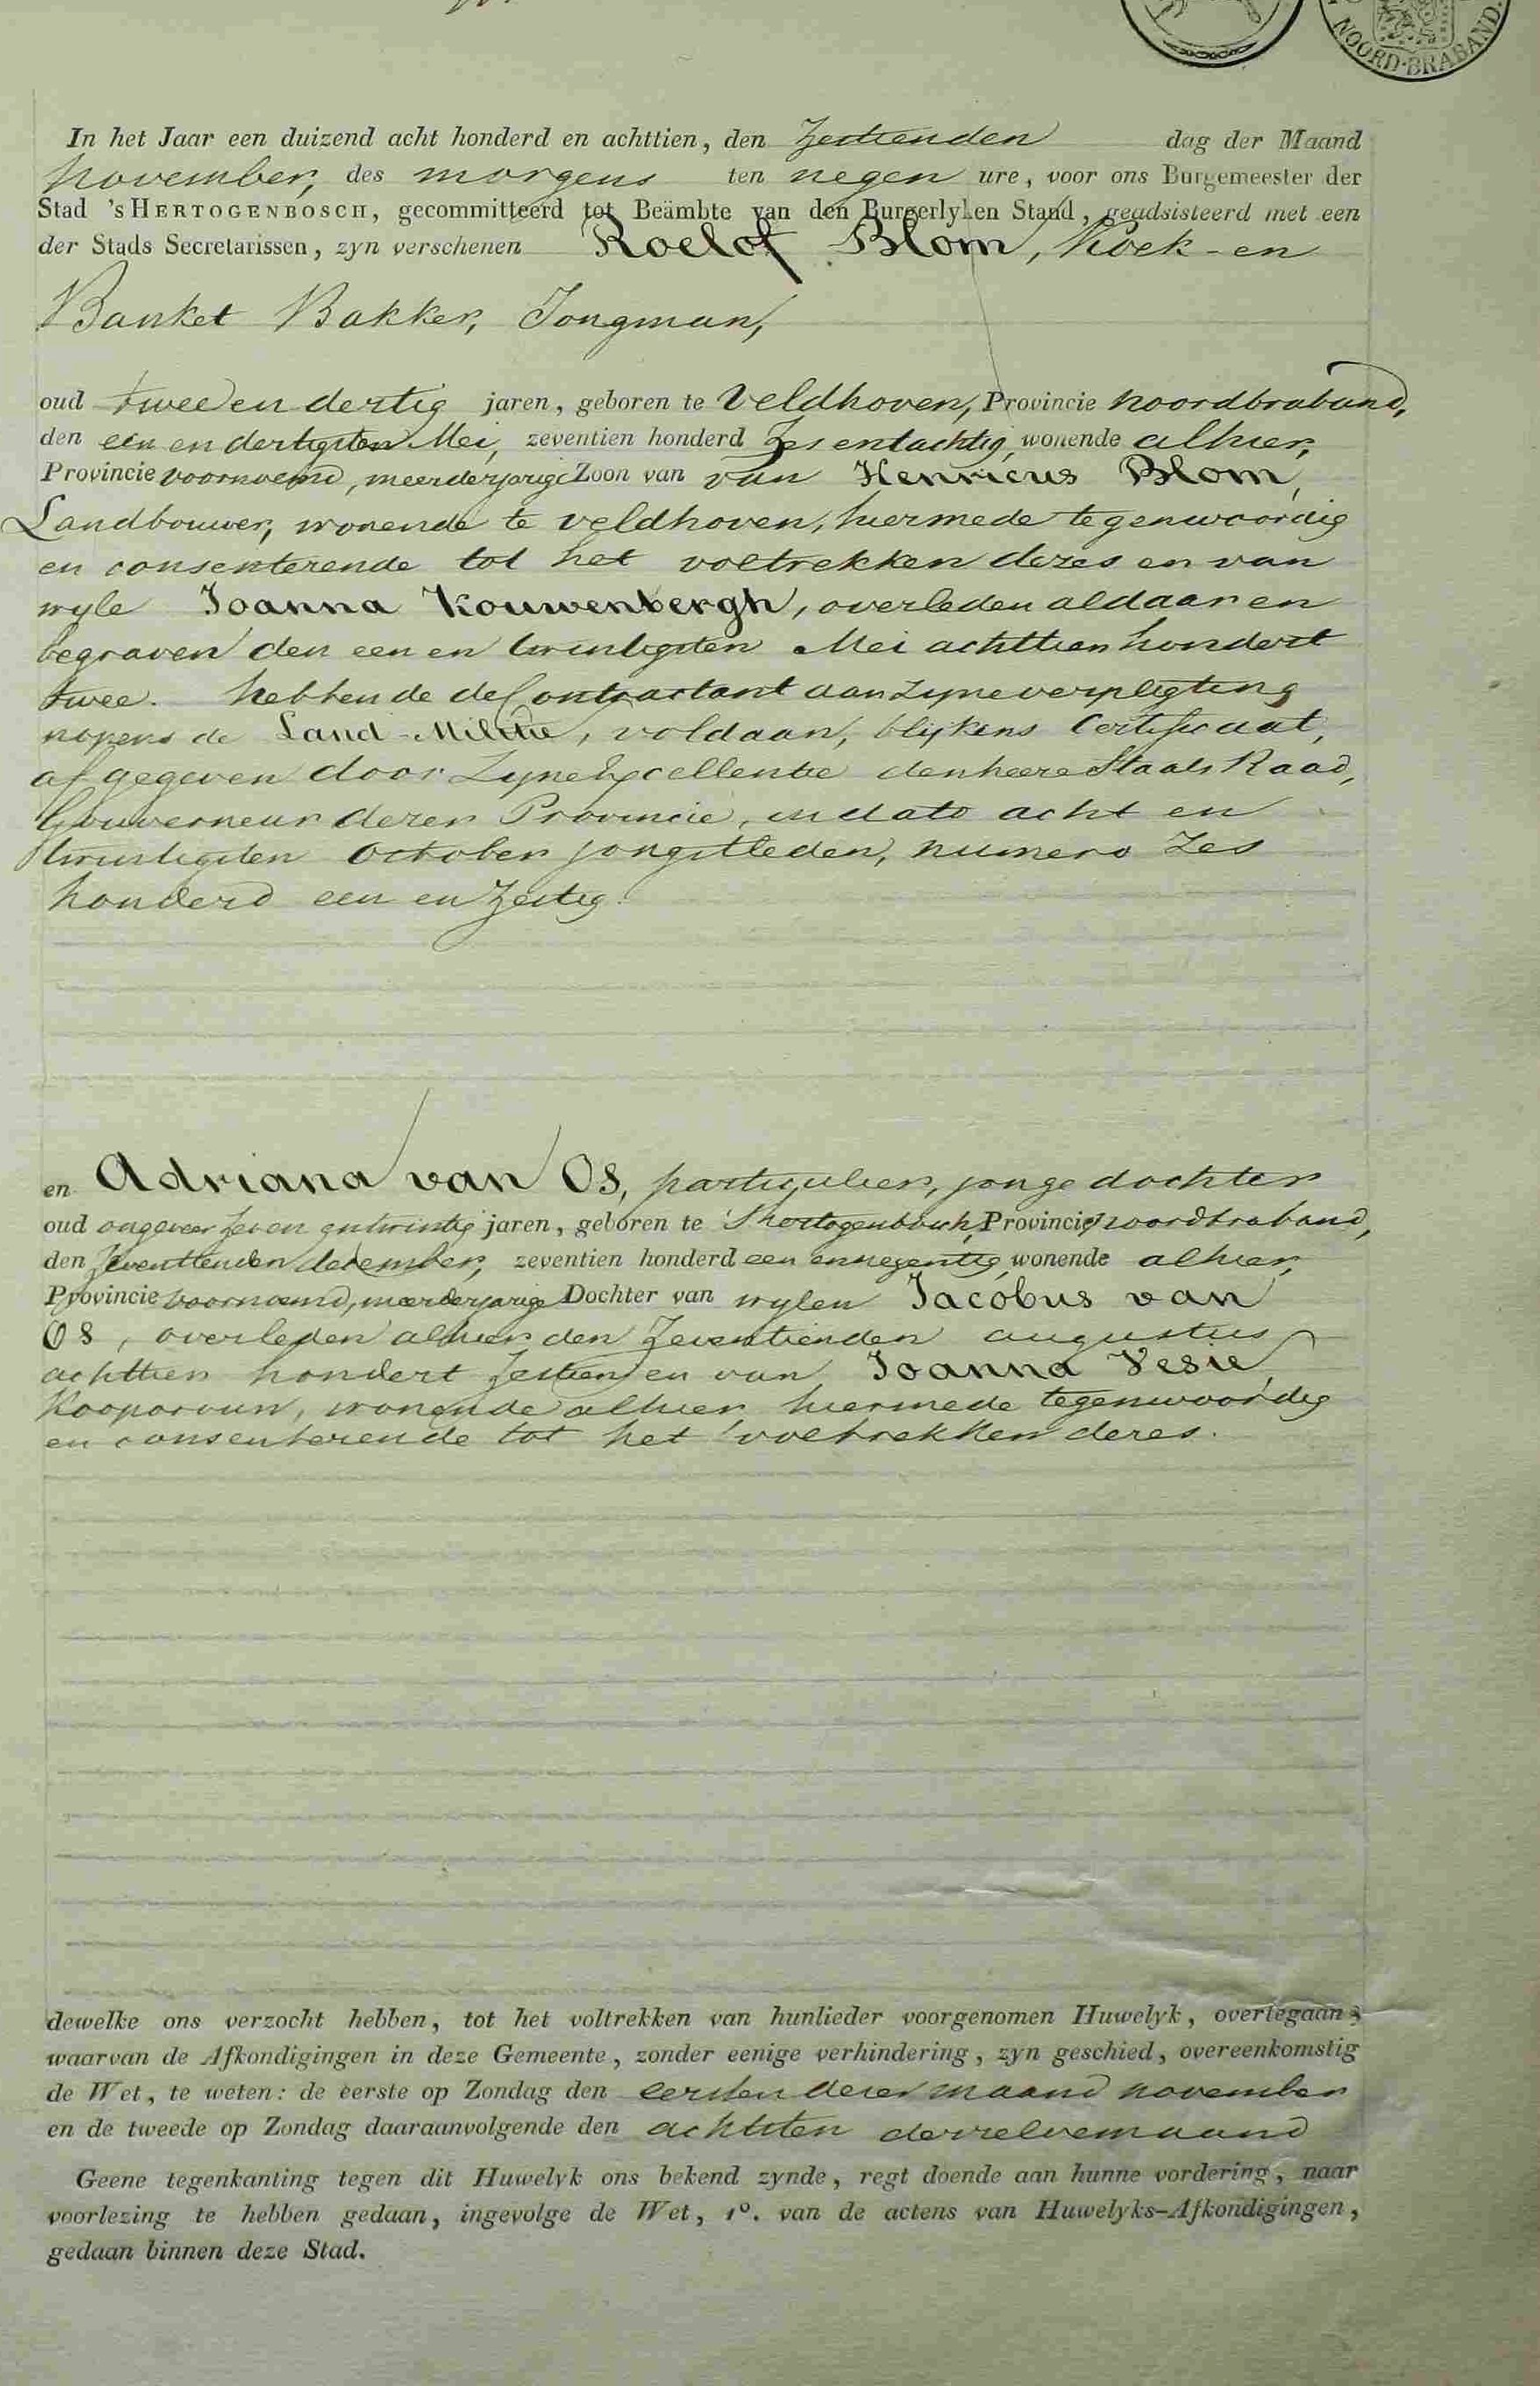 NOORD-BRABAND.
In het Jaar een duizend acht honderd en achttien, den Zestienden dag der Maand
November, des morgens ten negen ure, voor ons Burgemeester der
Stad 's HERTOGENBOSCH, gecommitteerd tot Beämbte van den Burgerlyken Stand, geadsisteerd met een
der Stads Secretarissen, zyn verschenen Roelof Blom, Koek- en
Banket Bakker, Jongman,
oud twee en dertig jaren, geboren te Veldhoven, Provincie Noordbraband,
den een en dertigsten Mei, zeventien honderd Zes entachtig, wonende alhier,
Provincie voornoemd, meerderjarige Zoon van van Henricus Blom,
Landbouwer, wonende te Veldhoven, hiermede tegenwoordig
en consenterende tot het voltrekken dezes en van
wyle Joanna Kouwenbergh, overleden aldaar en
begraven den een en twintigsten Mei achttien hondert
twee. hebbende de Contractant aan Zyne verpligting
nopens de Land-Militie, voldaan, blijkens Certificaat,
afgegeven door Zyne Excellentie den heere Staats Raad,
Gouverneur dezer Provincie, in dato acht en
twintigsten October jongstleden, numero Zes
honderd een en Zestig.
en Adriana van Os, particulier, jonge dochter
oud ongeveer Zeven entwintig jaren, geboren te 'Shertogenbosch, Provincie Noordbraband,
den Zeventienden december, zeventien honderd een ennegentig, wonende alhier,
Provincie voornoemd, meerderjarige Dochter van wylen Jacobus van
Os, overleden alhier den Zeventienden augustus
achttien hondert Zestien en van Joanna Vesie,
Koopvrouw, wonende alhier, hiermede tegenwoordig
en consenterende tot het voltrekken dezes.
dewelke ons verzocht hebben, tot het voltrekken van hunlieder voorgenomen Huwelyk, overtegaan;
waarvan de Afkondigingen in deze Gemeente, zonder eenige verhindering, zyn geschied, overeenkomstig
de Wet, te weten: de eerste op Zondag den eersten dezer maand November
en de tweede op Zondag daaraanvolgende den achtsten derzelvemaand
Geene tegenkanting tegen dit Huwelyk ons bekend zynde, regt doende aan hunne vordering, naar
voorlezing te hebben gedaan, ingevolge de Wet, 1º. van de actens van Huwelyks-Afkondigingen,
gedaan binnen deze Stad.